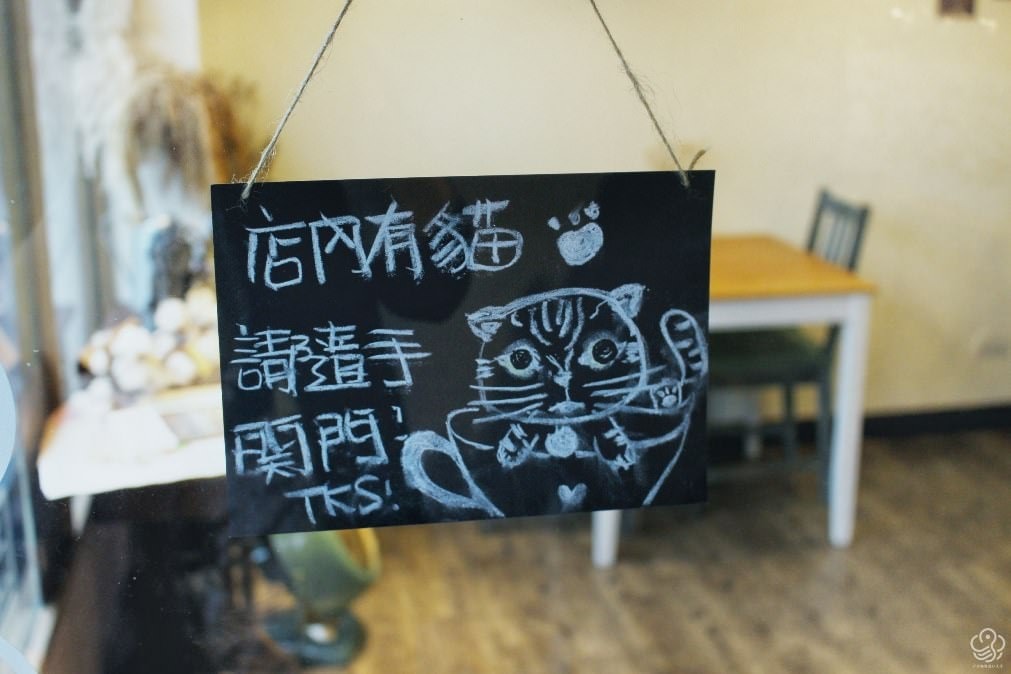 店內有貓
請隨手
関門!
TKS!